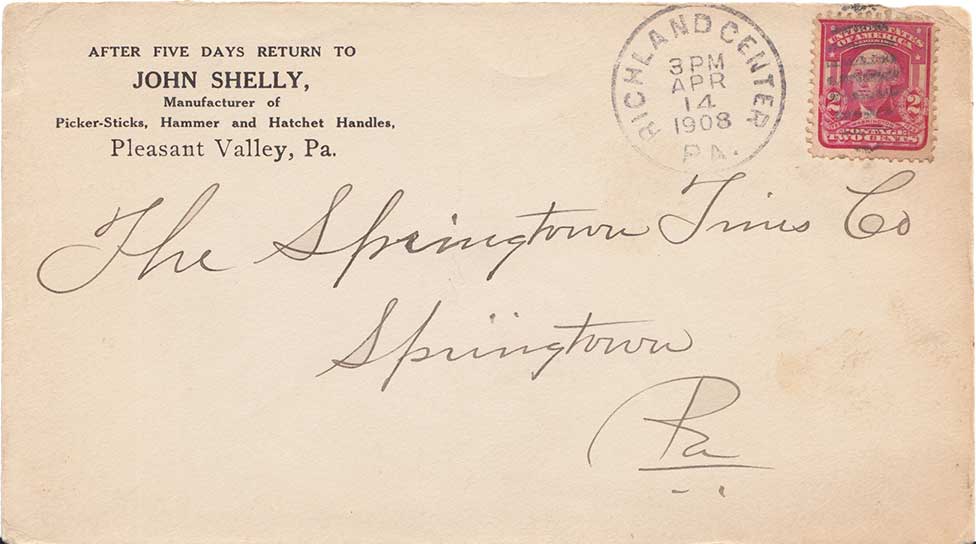 AFTER FIVE DAYS RETURN TO
JOHN SHELLY,
Manufacturer of
Picker-Sticks, Hammer and Hatchet Handles,
Pleasant Valley, Pa.
RICHLAND CENTER
3 PM
APR
14
1908
PA.
UNITED STATES
OF AMERICA
2 2
POSTAGE
TWO CENTS
The Springtown Times Co
Springtown
Pa